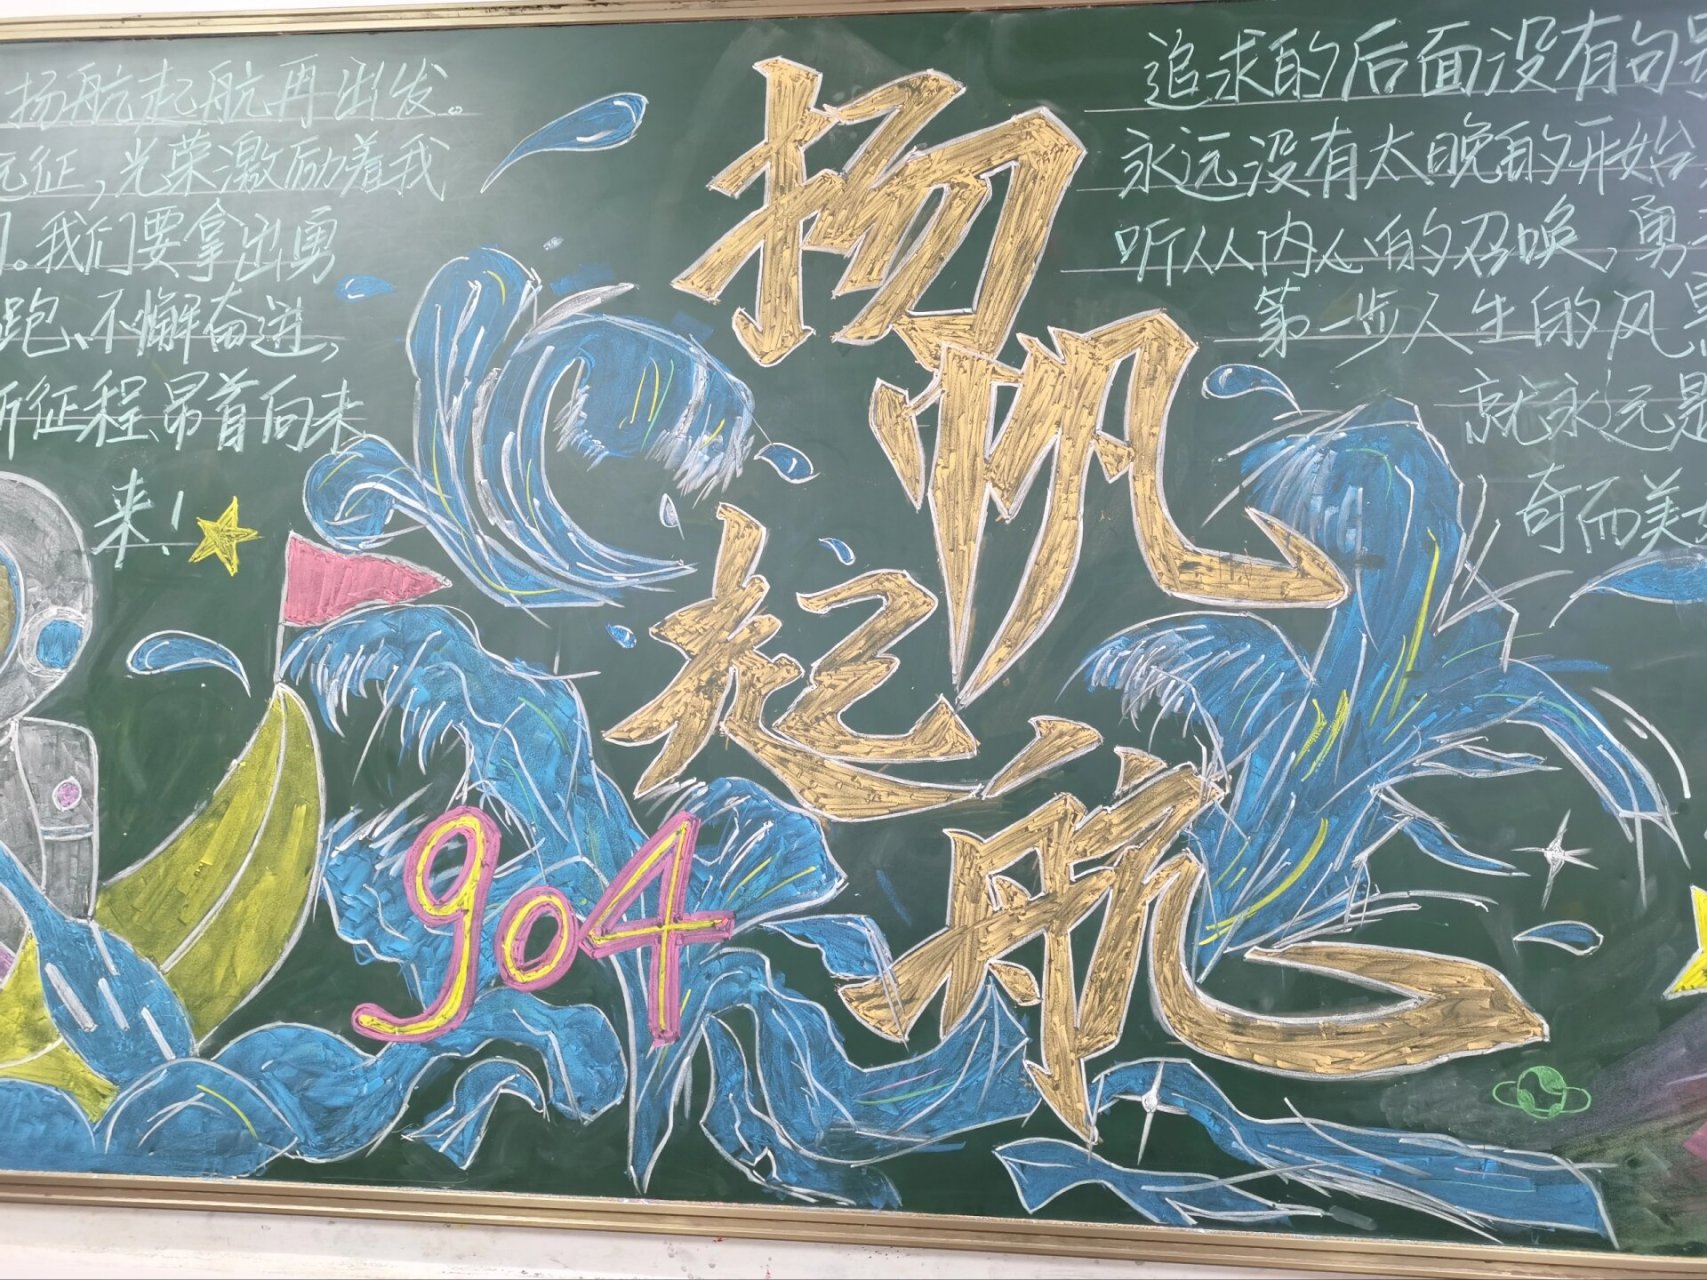 扬航起航再出发。
征,光荣激励着我
。我们要拿出勇
跑、不懈奋进,
征程、昂首向未
来!
扬帆
起航
904
追求的后面没有句
永远没有太晚的开始
听从内心的召唤,勇
第一步人生的风
就永远是
奇而美